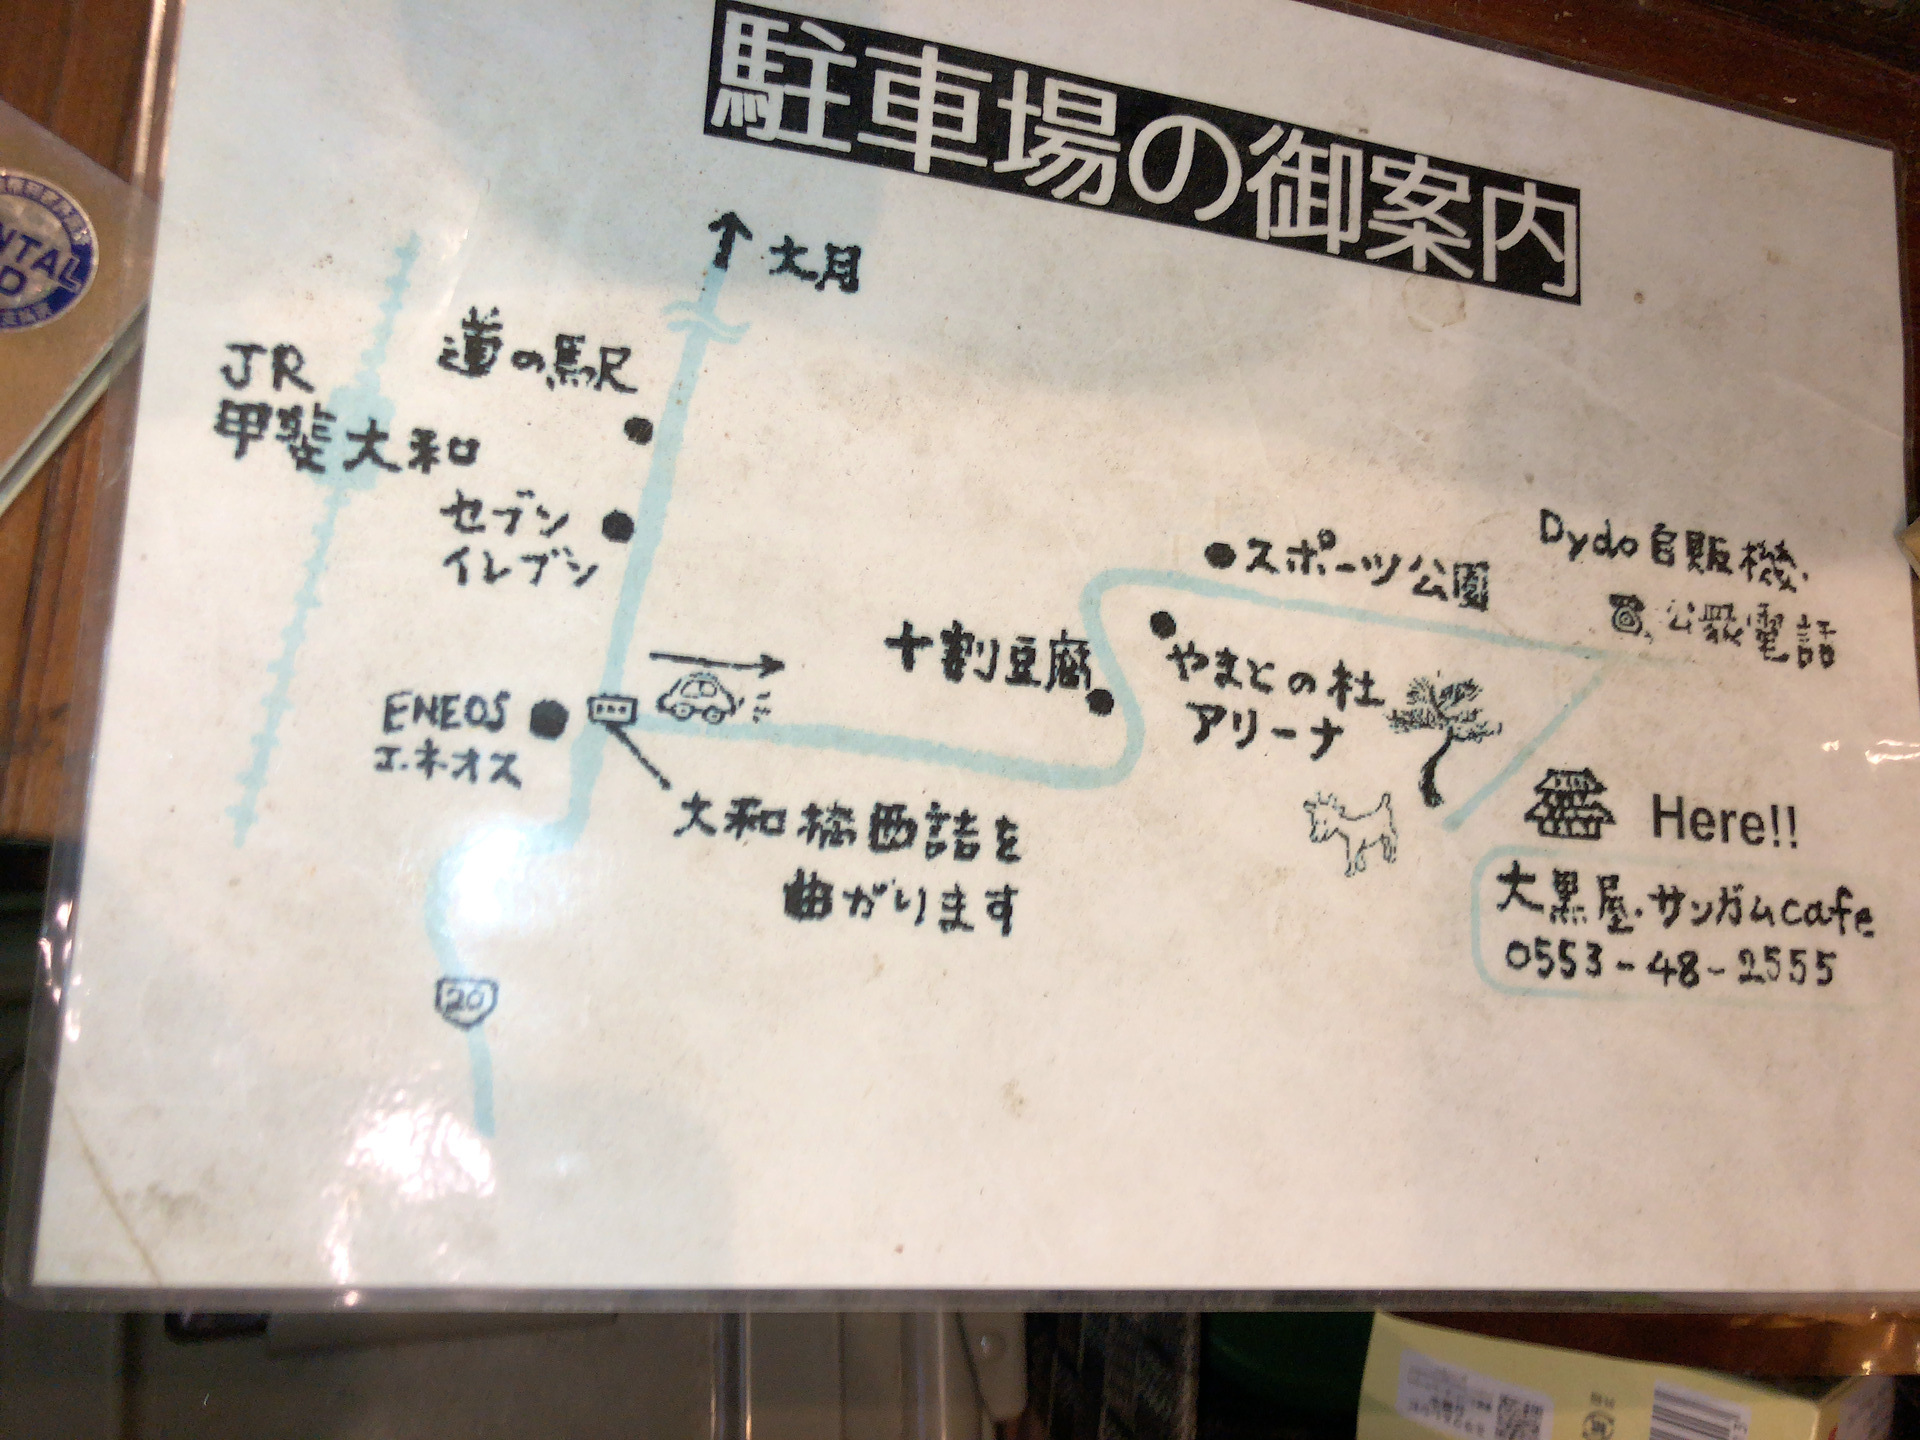 駐車場の御案内
大月
道の駅
JR
甲斐大和
セブン
イレブン
スポーツ公園
Dydo自販機
公衆電話
十割豆腐
やまとの杜
アリーナ
ENEOS
エネオス
大和橋西詰を
曲がります
Here!!
大黒屋・サンガムcafe
0553-48-2555
20